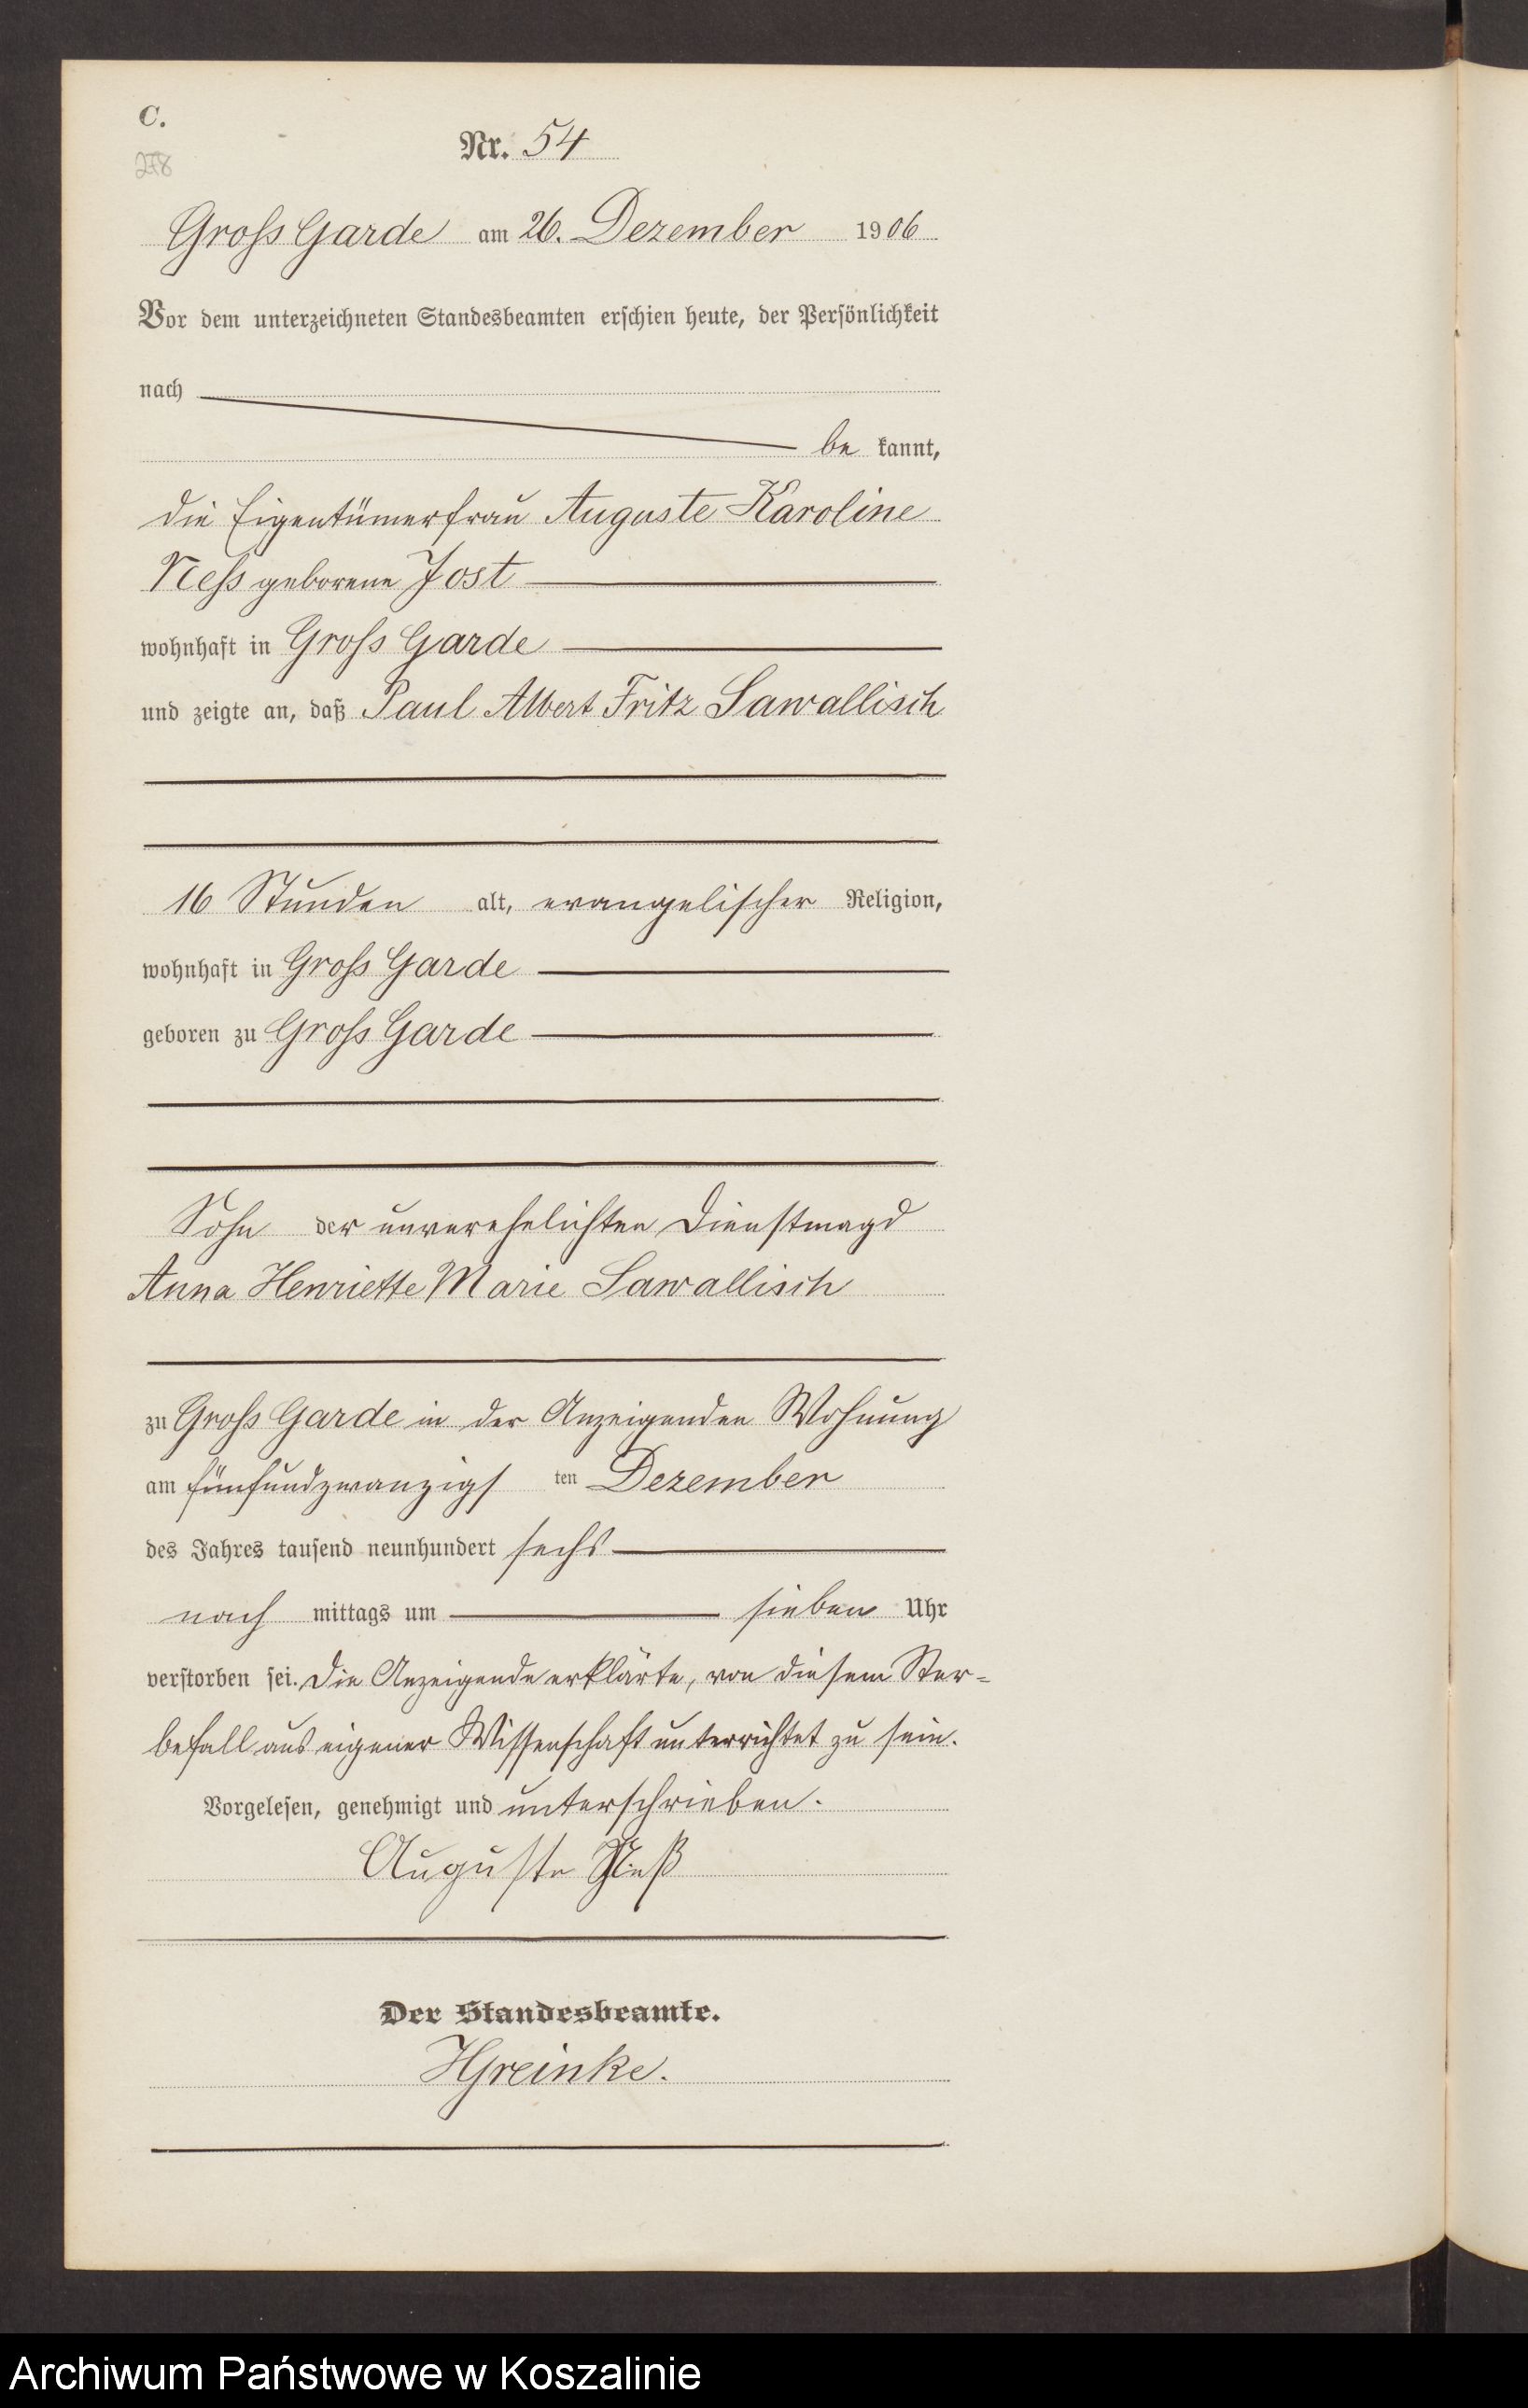 C.
278
Nr. 54
Gross Garde am 26. Dezember 1906
Vor dem unterzeichneten Standesbeamten erschien heute, der Persönlichkeit
nach
be kannt,
die Eigentümerfrau Auguste Karoline
Ness geborene Jost
wohnhaft in Gross Garde
und zeigte an, daß Paul Albert Fritz Sawallisch
16 Stunden alt, evangelischer Religion,
wohnhaft in Gross Garde
geboren zu Gross Garde
Sohn der unverehelichten Dienstmagd
Anna Henriette Marie Sawallisch
zu Gross Garde in der Anzeigenden Wohnung
am fünfundzwanzigs ten Dezember
des Jahres tausend neunhundert sechs
nach mittags um sieben Uhr
verstorben sei. Die Anzeigende erklärte, von diesem Ster-
befall aus eigener Wissenschaft unterrichtet zu sein.
Vorgelesen, genehmigt und unterschrieben.
Auguste Neß
Der Standesbeamte.
HGreinke.
Archiwum Państwowe w Koszalinie